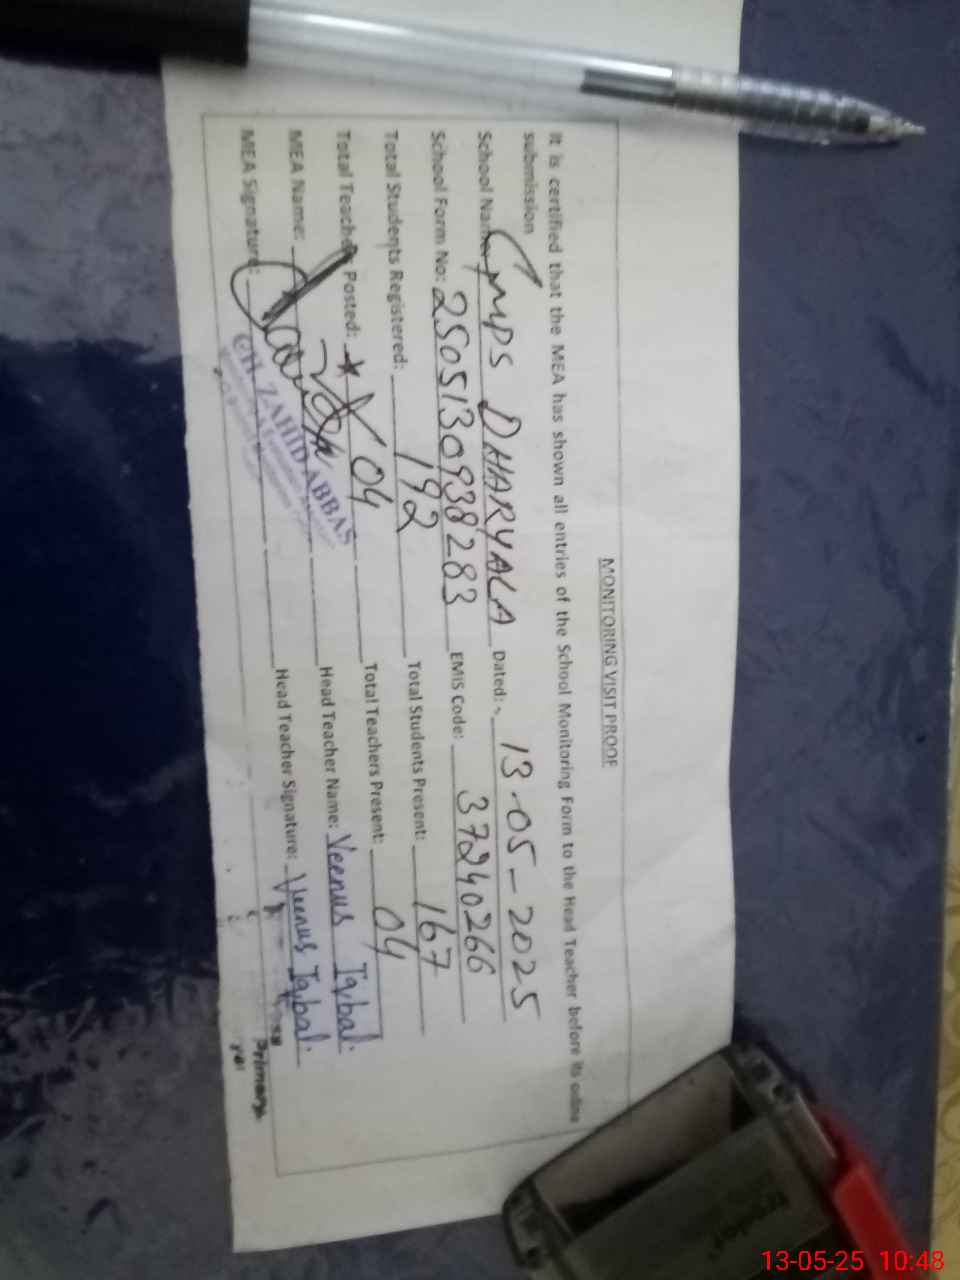 MONITORING VISIT PROOF
It is certified that the MEA has shown all entries of the School Monitoring Form to the Head Teacher before its online
submission
School Name: GMPS DHARYALA Dated: 13-05-2025
School Form No: 2505130938283 EMIS Code: 37240266
Total Students Registered: 192 Total Students Present: 167
Total Teachers Posted: 04 Total Teachers Present: 04
MEA Name: Head Teacher Name: Veenus Iqbal.
MEA Signature: Head Teacher Signature: Veenus Iqbal.
CH. ZAHID ABBAS
Primary
13-05-25 10:48